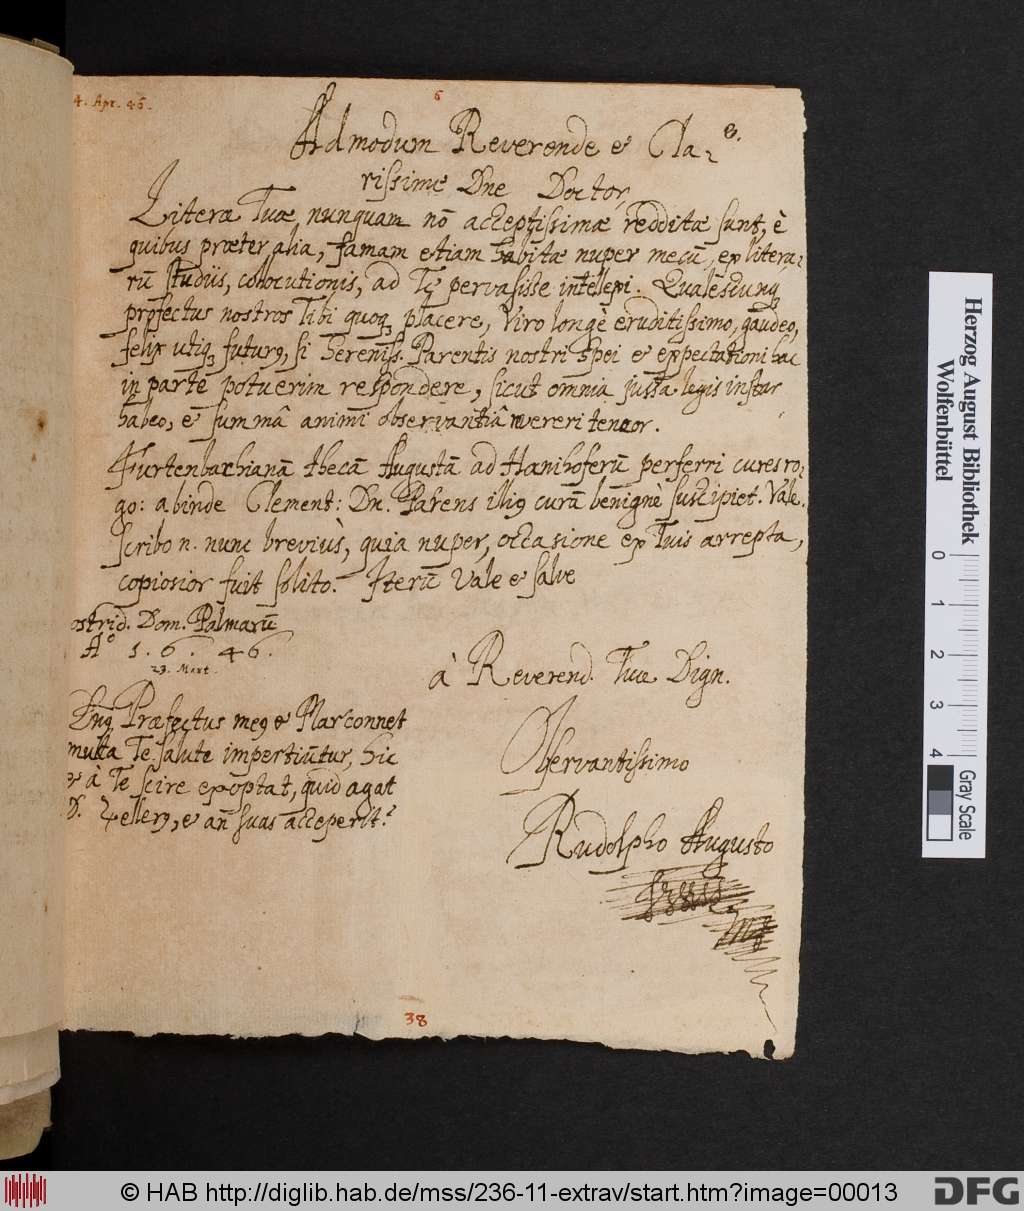 4. Apr. 46.
6
8.
Admodum Reverende et Cla-
rissime Dne Doctor,
Literæ Tuæ nunquam nō acceptissimæ redditæ sunt, è
quibus præter alia, famam etiam habitæ nuper mecū, ex litera-
rū studiis, colocutionis, ad Te pervasisse intellexi. Qualescunq;
profectus nostros Tibi quoq; placere, Viro longè eruditissimo, gaudeo,
felix utiq; futurq, si Sereniss. Parentis nostri spei et expectationi hac
in parte potuerim respondere, sicut omnia jussa legis instar
habeo, et summâ animi observantiâ vereri teneor.
Furtenbachianā thecā Augustā ad Hanihoferū perferri cures ro-
go: abinde Clement: Dn. Parens illiq curā benignè suscipiet. Vale.
scribo n. nunc breviùs, quia nuper, occasione ex Tuis arrepta,
copiosior fuit solito. Iterū Vale et salve
ostrid. Dom. Palmarū
Aº 1. 6. 46.
23. Mart.
à Reverend. Tuæ Dign.
Præfectus meq et Marconnet
multa Te salute impertiūtur, hic
et à Te scire exoptat, quid agat
D. Zellerq, et an suas acceperit.
Observantissimo
Rudolpho Augusto
38
Herzog August Bibliothek
Wolfenbüttel
0 1 2 3 4
Gray Scale
© HAB http://diglib.hab.de/mss/236-11-extrav/start.htm?image=00013
DFG